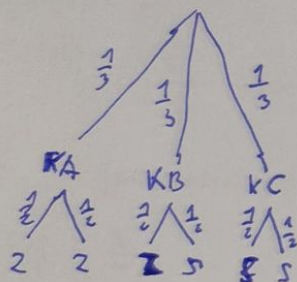 1/3 1/3 1/3
KA KB KC
1/2 1/2 1/2 1/2 1/2 1/2
2 2 S S